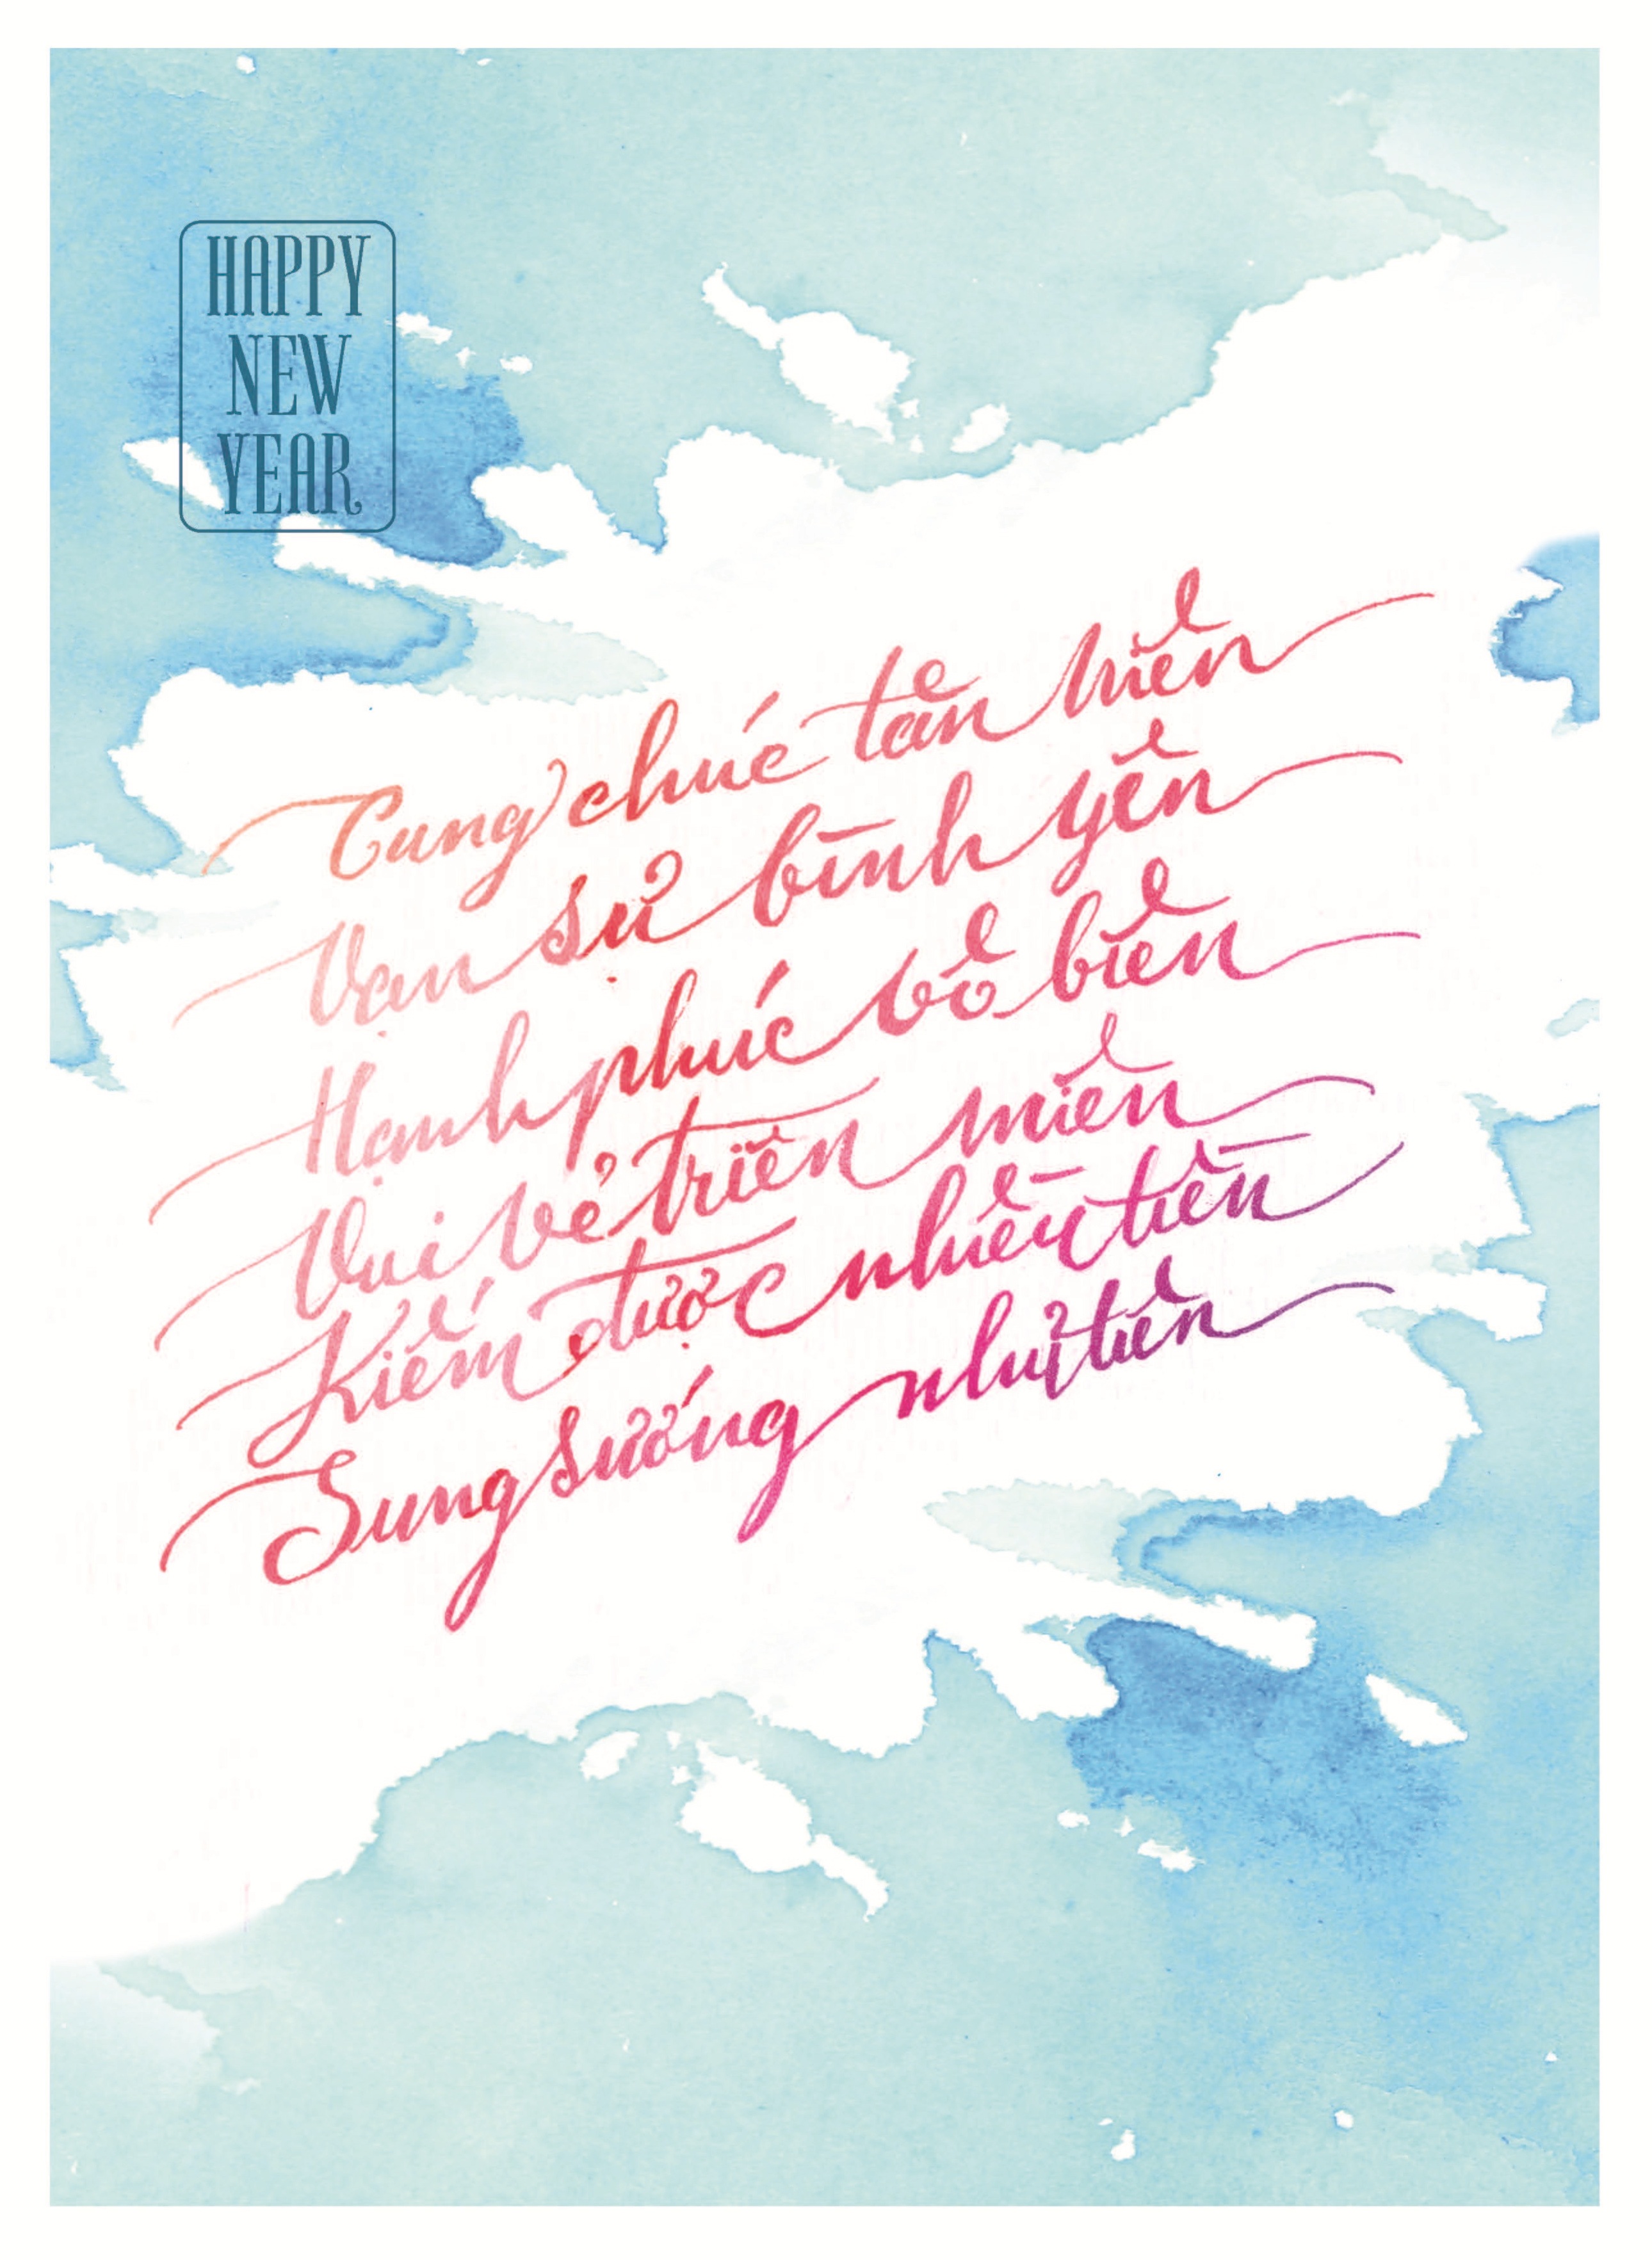 HAPPY
NEW
YEAR
Cung chúc tân niên
Vạn sự bình yên
Hạnh phúc vô biên
Vui vẻ triền miên
Kiếm được nhiều tiền
Sung sướng như tiên